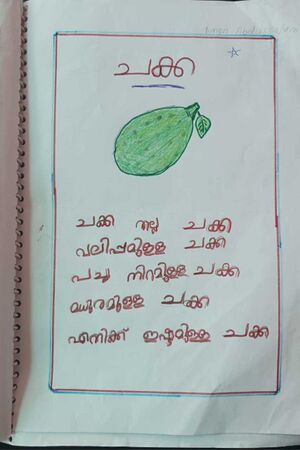 ചക്ക
ചക്ക നല്ല ചക്ക
വലിപ്പമുള്ള ചക്ക
പച്ച നിറമുള്ള ചക്ക
മധുരമുള്ള ചക്ക
എനിക്ക് ഇഷ്ടമുള്ള ചക്ക